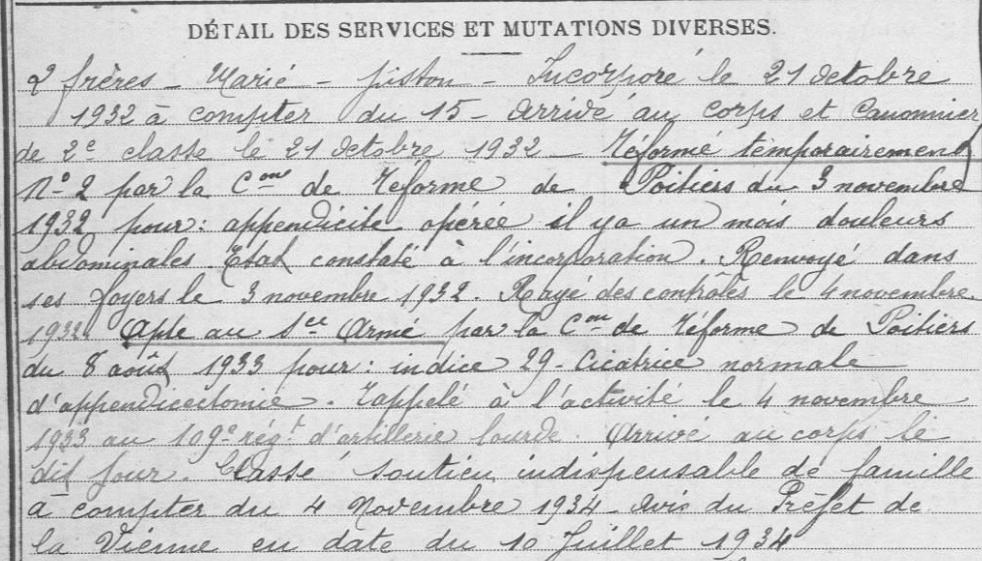 DÉTAIL DES SERVICES ET MUTATIONS DIVERSES.
2 frères - Marié - piston - Incorporé le 21 Octobre
1932 à compter du 15 - Arrivé au corps et Canonnier
de 2e classe le 21 Octobre 1932 - Réformé temporairement
No 2 par la Con de Réforme de Poitiers du 3 novembre
1932 pour : appendicite opérée il y a un mois douleurs
abdominales Etat constaté à l'incorporation. Renvoyé dans
ses foyers le 3 novembre 1932. Rayé des contrôles le 4 novembre
1932. Apte au Sce Armé par la Con de Réforme de Poitiers
du 8 août 1933 pour : indice 29 - Cicatrice normale
d'appendicectomie. Rappelé à l'activité le 4 novembre
1933 au 109e régt d'artillerie lourde. Arrivé au corps le
dit jour. Classé soutien indispensable de famille
à compter du 4 Novembre 1934. Avis du Préfet de
la Vienne en date du 10 Juillet 1934